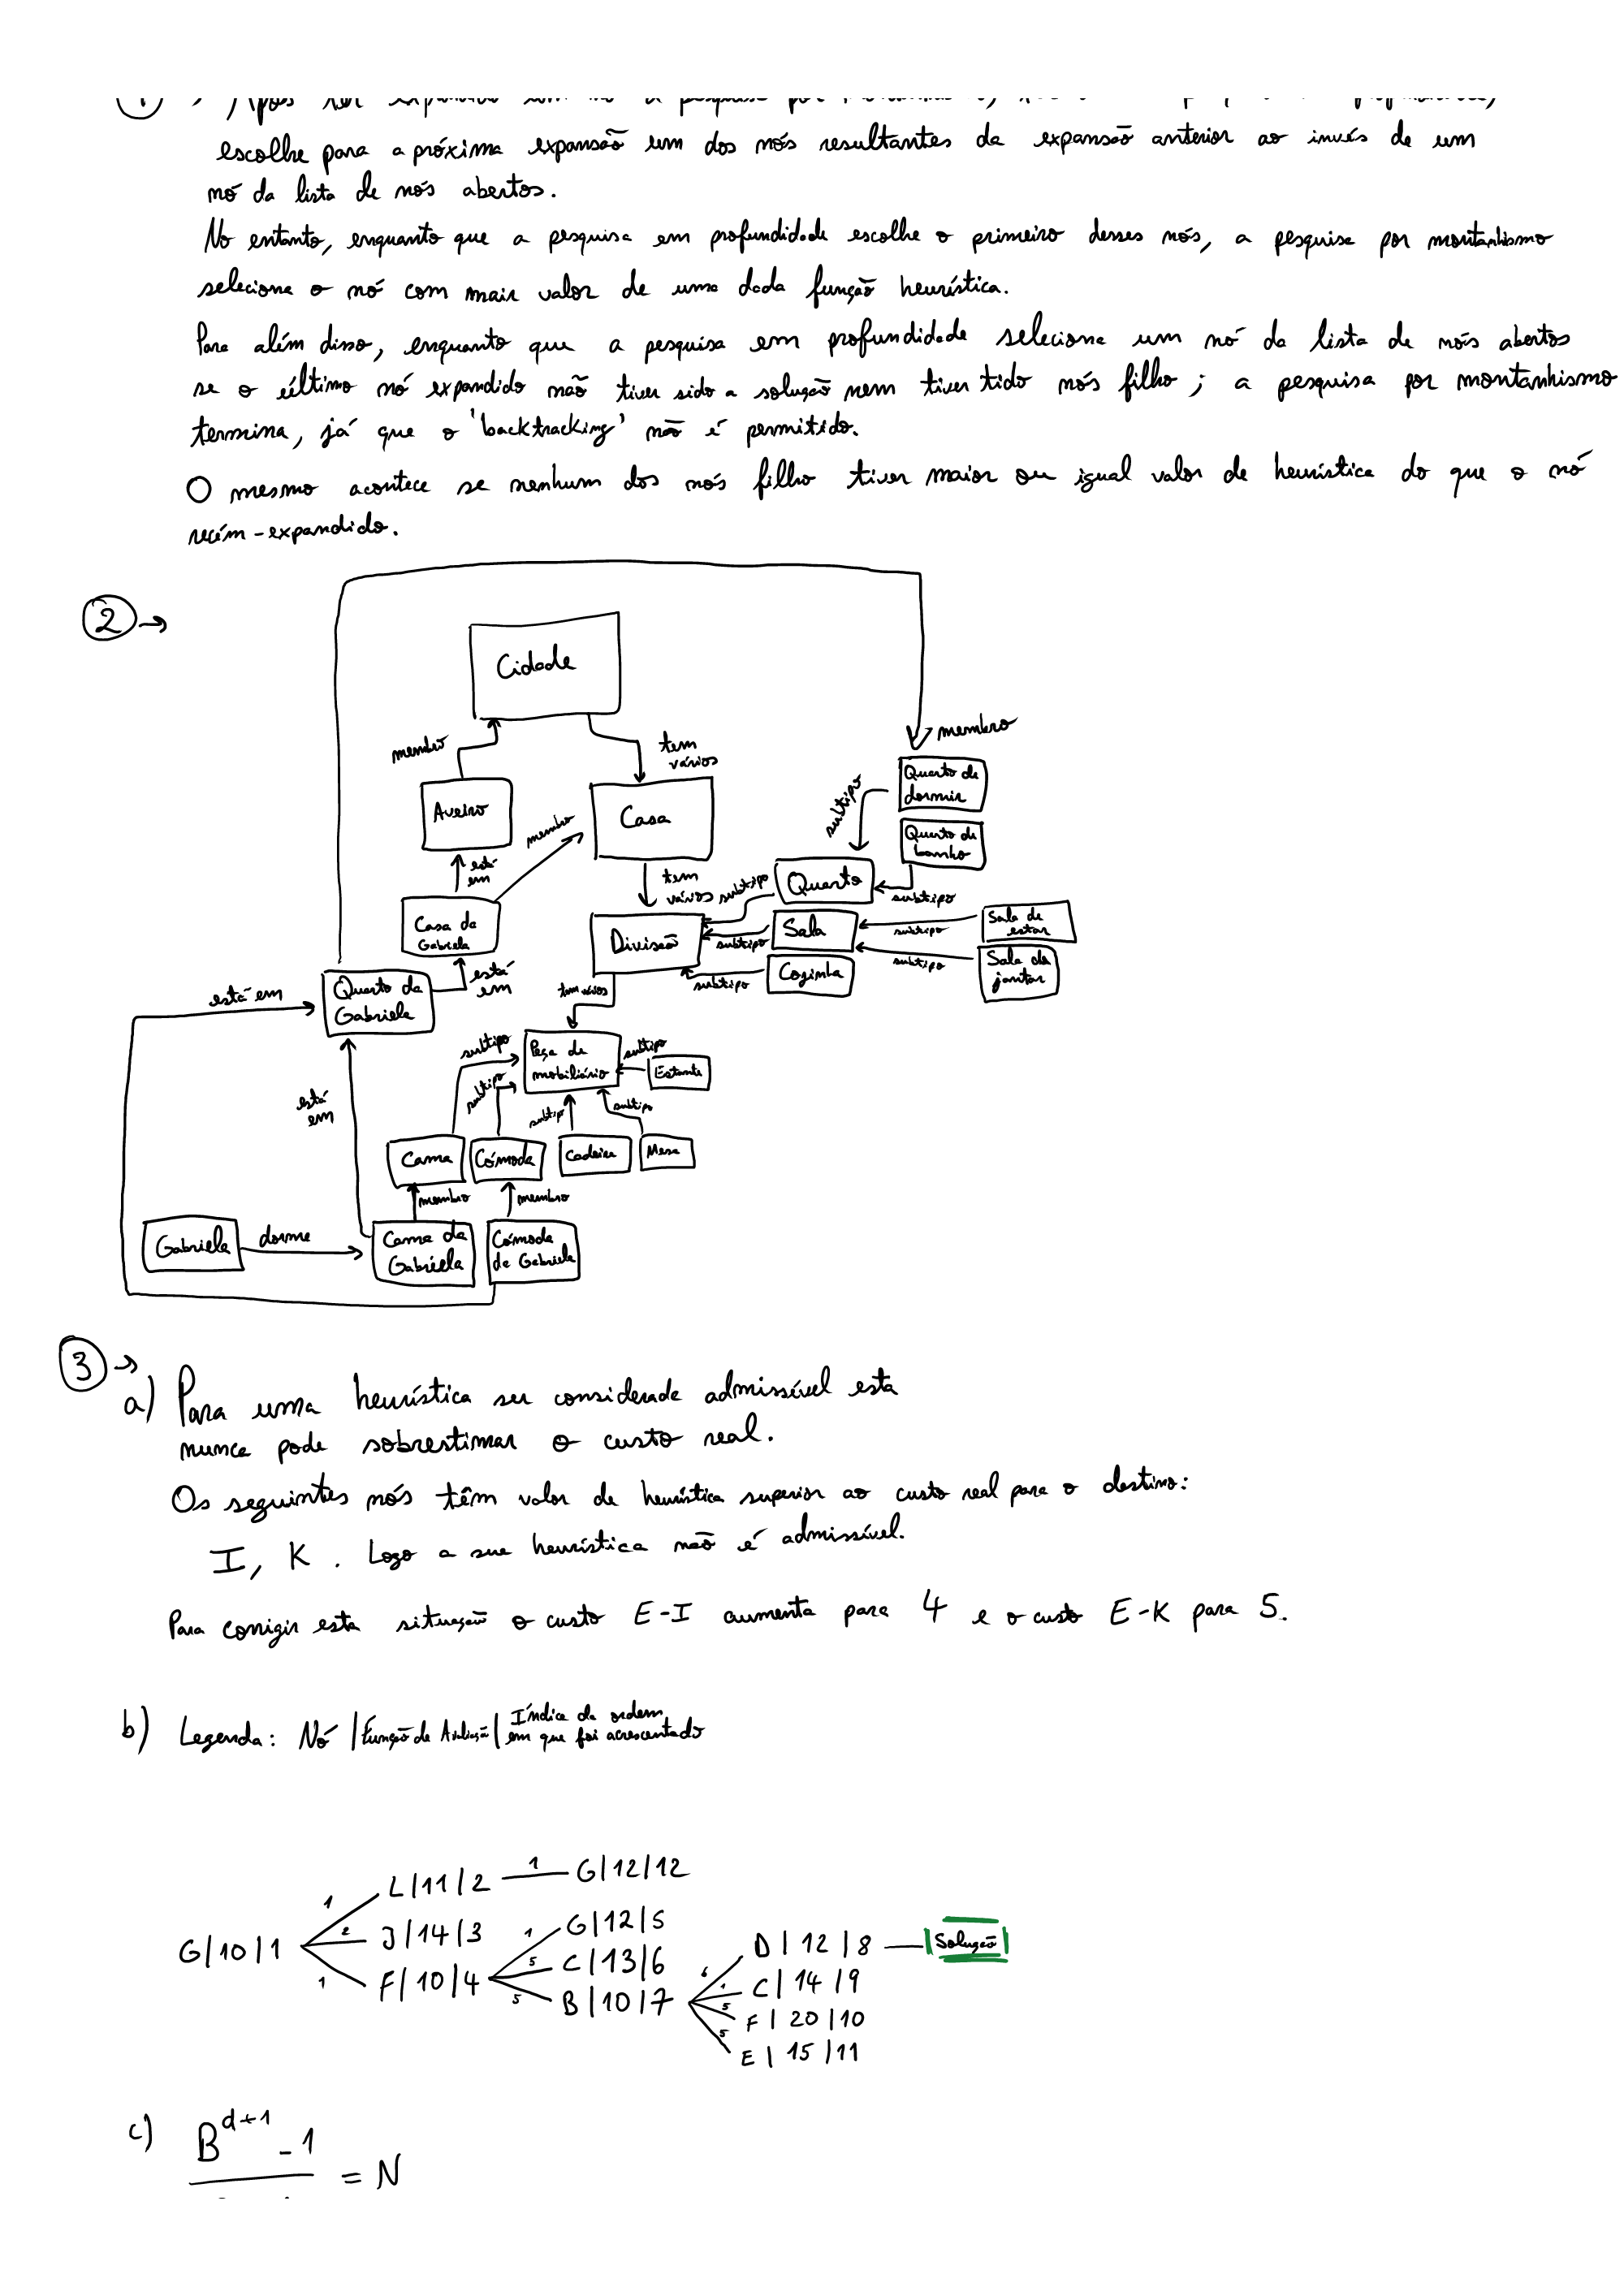 1 → Após ter expandido um nó a pesquisa por montanhismo,
escolhe para a próxima expansão um dos nós resultantes da expansão anterior ao invés de um
nó da lista de nós abertos.
No entanto, enquanto que a pesquisa em profundidade escolhe o primeiro desses nós, a pesquisa por montanhismo
seleciona o nó com mair valor de uma dada função heurística.
Para além disso, enquanto que a pesquisa em profundidade seleciona um nó da lista de nós abertos
se o último nó expandido não tiver sido a solução nem tiver tido nós filho; a pesquisa por montanhismo
termina, já que o 'backtracking' não é permitido.
O mesmo acontece se nenhum dos nós filho tiver maior ou igual valor de heurística do que o nó
recém-expandido.
2 →
Cidade
membro
tem
vários
membro
Aveiro
Casa
membro
Quarto de
dormir
subtipo
Quarto de
banho
está
em
tem
vários
subtipo
Quarto
subtipo
Casa da
Gabriela
Divisão
subtipo
Sala
subtipo
Sala de
estar
subtipo
Sala de
jantar
subtipo
Cozinha
está em
Quarto da
Gabriela
está
em
tem vários
subtipo
subtipo
Peça de
mobiliário
subtipo
Estante
está
em
subtip
subtipo
Cama
Cómoda
Cadeira
Mesa
membro
membro
Gabriela
dorme
Cama da
Gabriela
Cómoda
da Gabriela
3 →
a) Para uma heurística ser considerada admissível esta
nunca pode sobrestimar o custo real.
Os seguintes nós têm valor de heurística superior ao custo real para o destino:
I, K . Logo a sua heurística não é admissível.
Para corrigir esta situação o custo E-I aumenta para 4 e o custo E-K para 5.
b) Legenda: Nó | Função de Avaliação | Índice da ordem
em que foi acrescentado
1
L|11|2
1
G|12|12
G|10|1
2
J|14|3
1
G|12|5
1
F|10|4
5
C|13|6
5
B|10|7
6
D|12|8
Solução
1
C|14|9
5
F|20|10
5
E|15|11
c) B^{d+1} - 1
= N